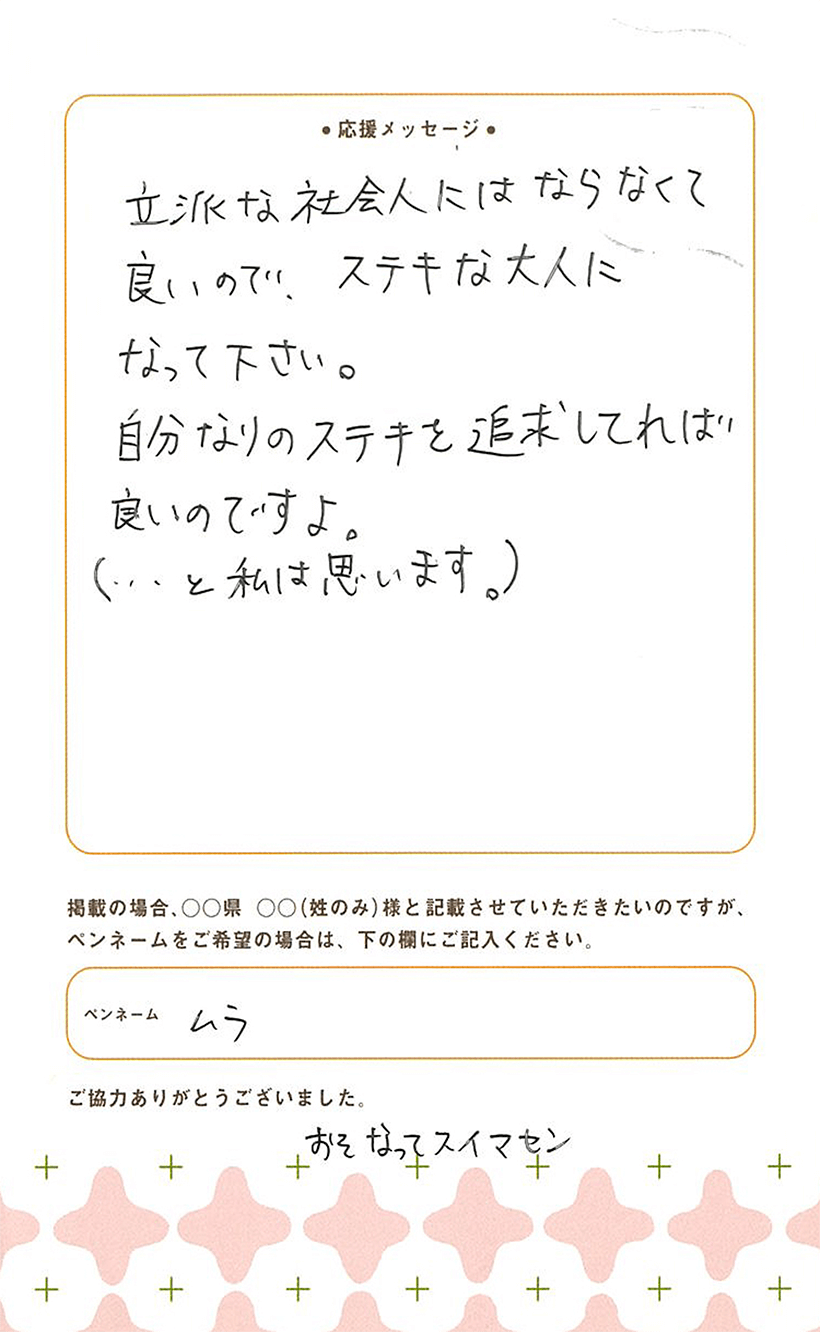 •応援メッセージ•
立派な社会人にはならなくて
良いので、ステキな大人に
なって下さい。
自分なりのステキを追求してれば
良いのですよ。
(...と私は思います。)
掲載の場合、〇〇県 〇〇(姓のみ)様と記載させていただきたいのですが、
ペンネームをご希望の場合は、下の欄にご記入ください。
ペンネーム ムラ
ご協力ありがとうございました。
おそなってスイマセン